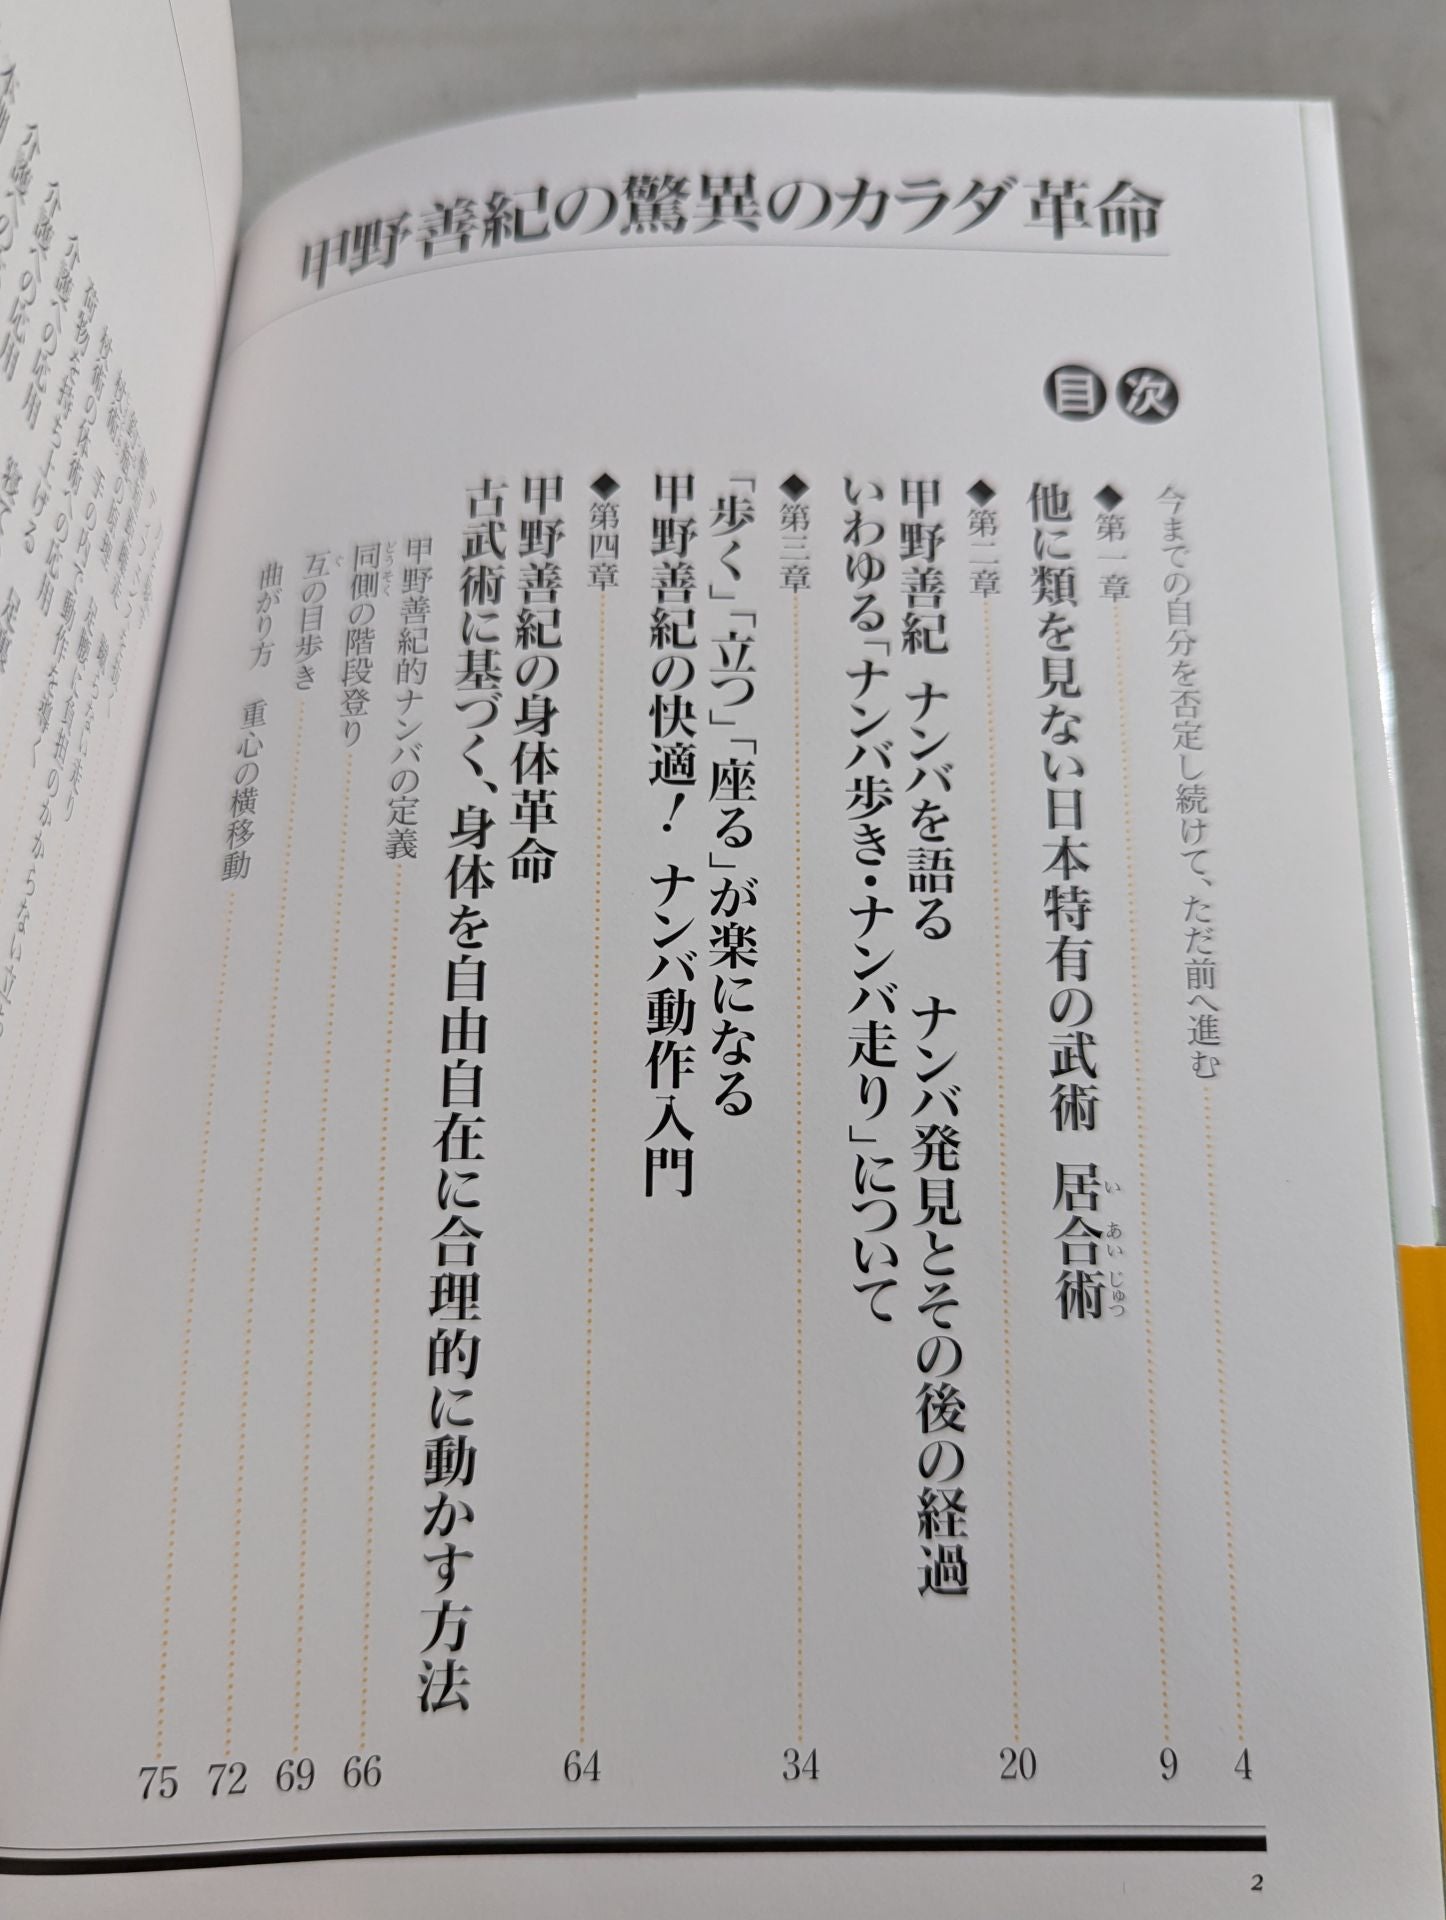 甲野善紀の驚異のカラダ革命
目次
今までの自分を否定し続けて、ただ前へ進む 4
◆第一章 9
他に類を見ない日本特有の武術 居合術
いあいじゅつ
◆第二章 20
甲野善紀 ナンバを語る ナンバ発見とその後の経過
いわゆる「ナンバ歩き・ナンバ走り」について
◆第三章 34
「歩く」「立つ」「座る」が楽になる
甲野善紀の快適！ ナンバ動作入門
◆第四章 64
甲野善紀の身体革命
古武術に基づく、身体を自由自在に合理的に動かす方法
甲野善紀的ナンバの定義 66
同側の階段登り 69
どうそく
互の目歩き 72
ぐ
曲がり方 重心の横移動 75
2